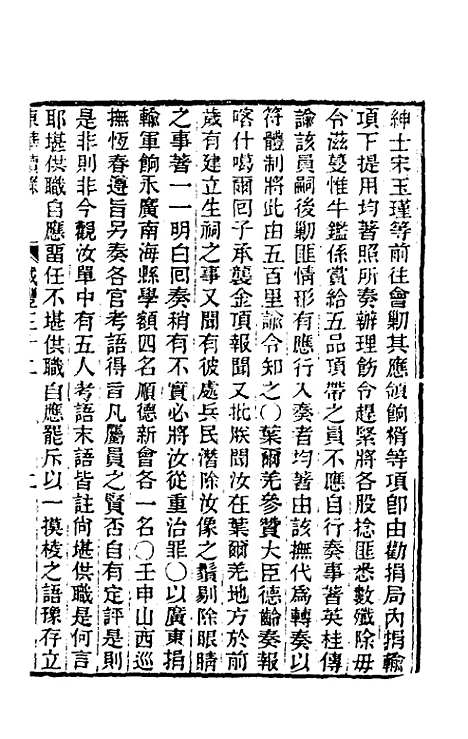 紳士宋玉瑾等前往會勦其應領餉糈等項卽由勸捐局內捐輸
項下提用均著照所奏辦理飭令趕緊將各股捻匪悉數殲除毋
令滋蔓惟牛鑑係賞給五品頂帶之員不應自行奏事著英桂傳
諭該員嗣後勦匪情形有應行入奏者均著由該撫代爲轉奏以
符體制將此由五百里諭令知之〇葉爾羌參贊大臣德齡奏報
喀什噶爾回子承襲金頂報聞又批朕聞汝在葉爾羌地方於前
歲有建立生祠之事又聞有彼處兵民潛除汝像之鬚剔除眼睛
之事著一一明白回奏稍有不實必將汝從重治罪〇以廣東捐
輸軍餉永廣南海縣學額四名順德新會各一名〇壬申山西巡
撫恆春遵旨另奏各官考語得旨凡屬員之賢否自有定評是則
是非則非今觀汝單中有五人考語末語皆註尙堪供職是何言
耶堪供職自應畱任不堪供職自應罷斥以一摸棱之語豫存立
東華續錄 咸豐三十二